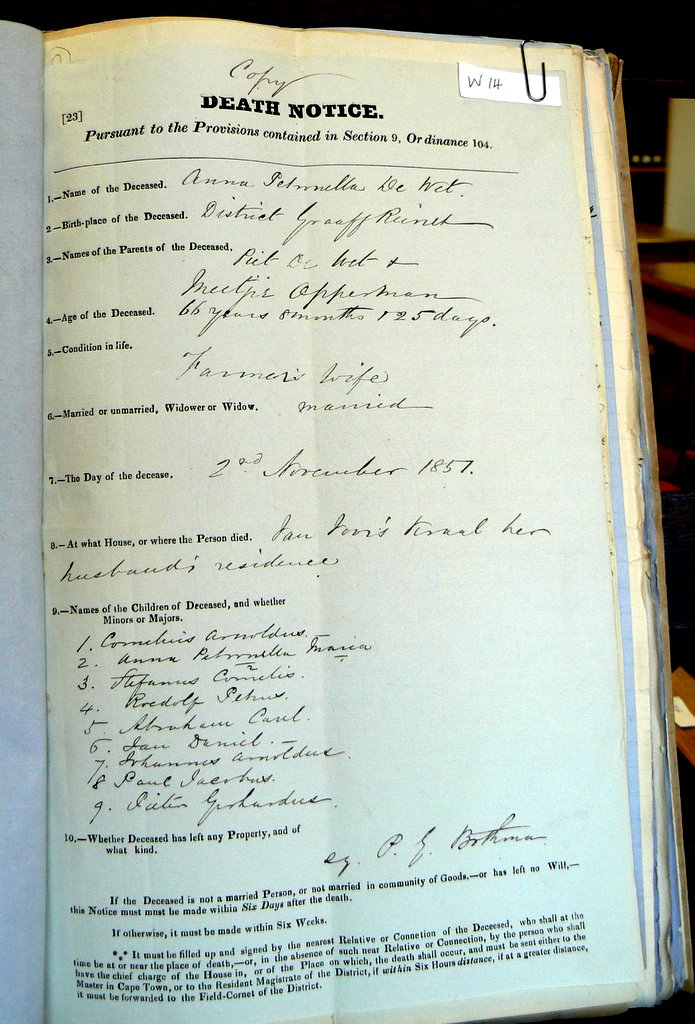 Copy
W 14
[23]
DEATH NOTICE.
Pursuant to the Provisions contained in Section 9, Ordinance 104.
1.—Name of the Deceased. Anna Petronella De Wet.
2—Birth-place of the Deceased. District Graaff Reinet
3.—Names of the Parents of the Deceased.
Piet De Wet &
Meetjie Opperman
4.—Age of the Deceased. 66 years 8 months & 25 days.
5.—Condition in life.
Farmer's Wife
6.—Married or unmarried, Widower or Widow. married
7.—The Day of the decease. 2nd November 1857.
8.—At what House, or where the Person died. Jan Kraal her
husband's residence
9.—Names of the Children of Deceased, and whether
Minors or Majors.
1. Cornelius Arnoldus.
2. Anna Petronella Maria
3. Stefanus Cornelis.
4. Roedolf Petrus.
5 Abraham Carel.
6. Jan Daniel. —
7. Johannes Arnoldus.
8 Paul Jacobus.
9. Pieter Gerhardus.
10.—Whether Deceased has left any Property, and of
what kind.
P. G. Bothma
If the Deceased is not a married Person, or not married in community of Goods.—or has left no Will,—
this Notice must must be made within Six Days after the death.
If otherwise, it must be made within Six Weeks.
*** It must be filled up and signed by the nearest Relative or Connetion of the Deceesed, who shall at the
time be at or near the place of death,—or, in the absence of such near Relative or Connection, by the person who shall
have the chief charge of the House in, or of the Place on which, the death shall occur, and must be sent either to the
Master in Cape Town, or to the Resident Magistrate of the District, if within Six Hours distance, if at a greater distance,
it must be forwarded to the Field-Cornet of the District.